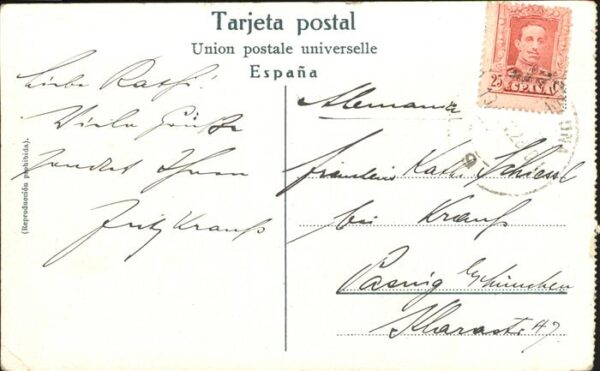 Tarjeta postal
Union postale universelle
España
25
ESPAÑA
(Reproducción prohibida).
Liebe Kathi!
Viele Grüße
sendet Ihnen
Fritz Krauß
Alemania
Fräulein Kath.
bei Krauß
Pasing b/München
Klarastr. 47